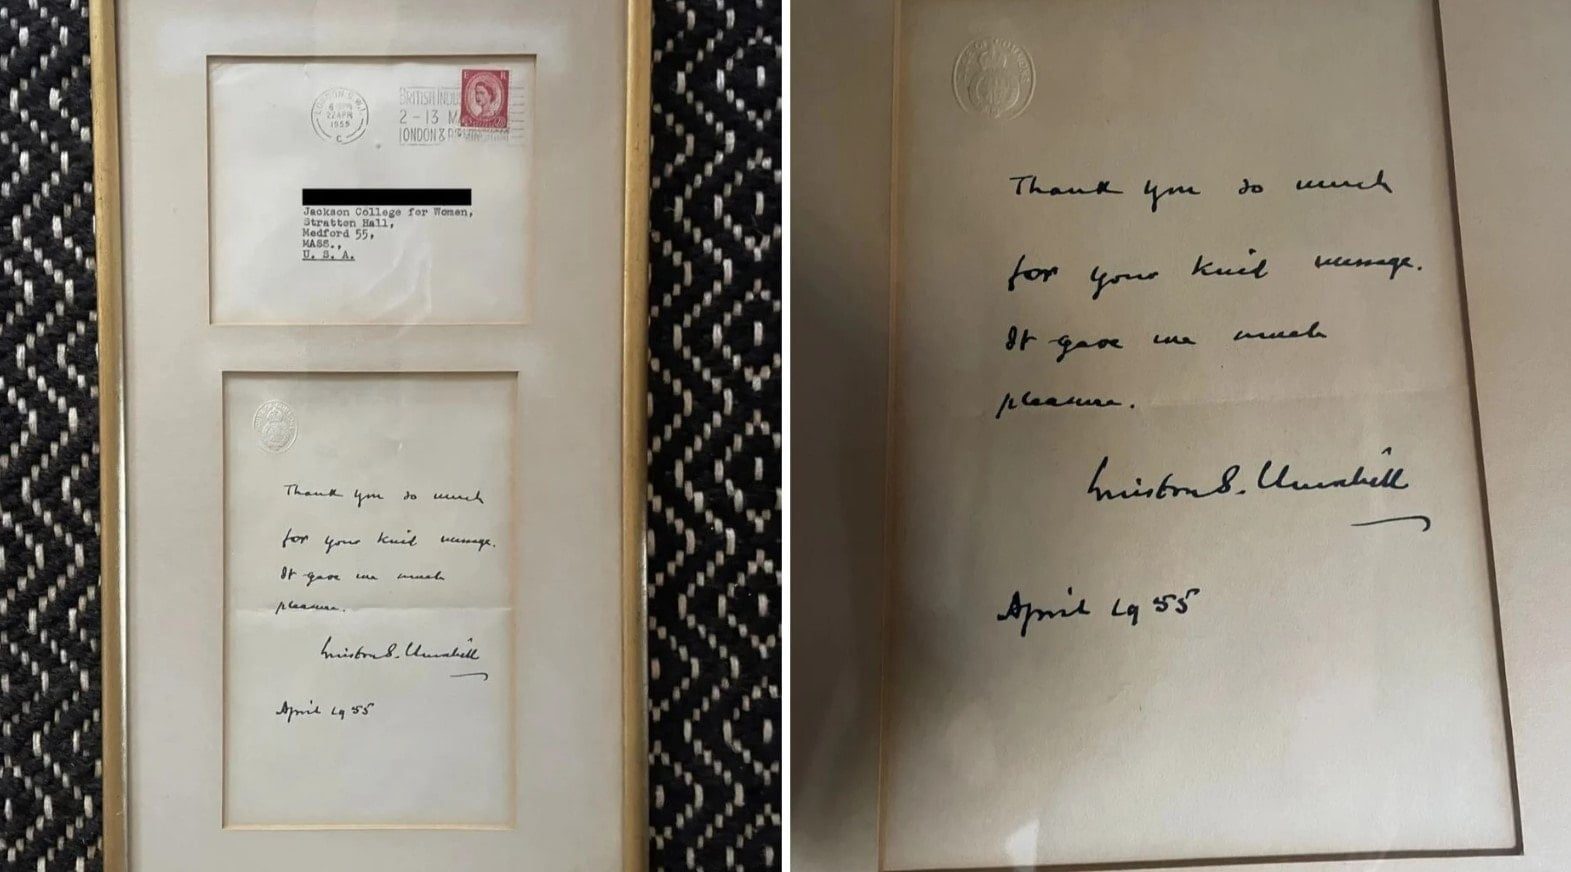 LONDON. S.W.1
6 15 PM
22 APR
1955
C
BRITISH INDUS
2 - 13 MA
LONDON & B
E R
Jackson College for Women,
Stratton Hall,
Medford 55,
MASS.,
U. S. A.
Thank you so much
for your kind message.
It gave me much
pleasure.
Winston S. Churchill
April 1955
Thank you so much
for your kind message.
It gave me much
pleasure.
Winston S. Churchill
April 1955